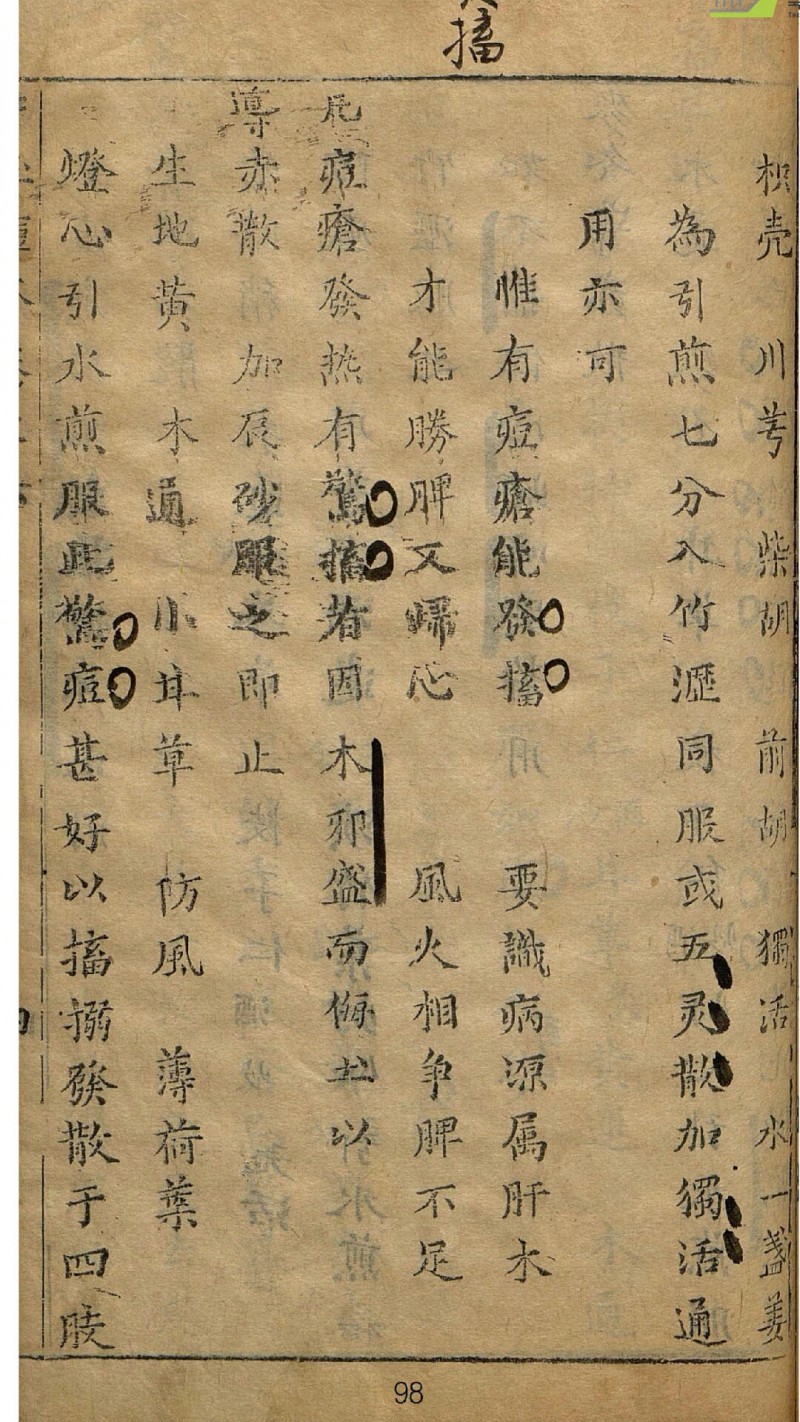 搐
枳壳 川芎 柴胡 前胡 獨活 水一盞姜
為引煎七分入竹瀝同服或五灵散加獨活通
用亦可
惟有痘瘡能發搐 要識病源属肝木
才能勝脾又歸心 風火相争脾不足
凡痘瘡發热有驚搐者因木邪盛而侮土以
導赤散加辰砂服之即止
生地黄 木通 小甘草 防風 薄荷葉
燈心引水煎服此驚痘甚好以搐搦發散于四肢
98